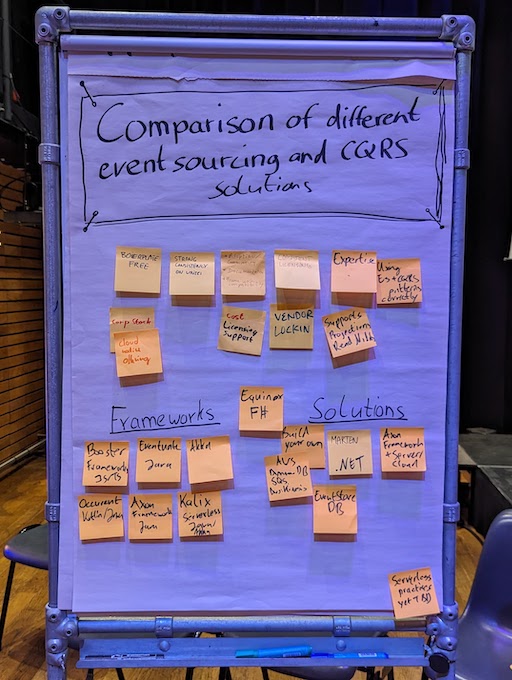 Comparison of different
event sourcing and CQRS
solutions
BOILERPLATE
FREE
STRONG
CONSISTENCY
ON WRITES
Expertise
Using
ES+CQRS
patterns
correctly
Cloud
native
offering
Cost
Licensing
Support
VENDOR
LOCKIN
Supports
Projections
Read Models
Frameworks
Equinox
F#
Solutions
Booster
Framework
JS/TS
Eventuate
Java
Akka
Build
your own
MARTEN
.NET
Axon
Framework
+ Server/
Cloud
AWS
DynamoDB
SQS
Occurrent
Kotlin/Java
Axon
Framework
Java
Kalix
Serverless
EventStore
DB
Serverless
practices
yet TBD